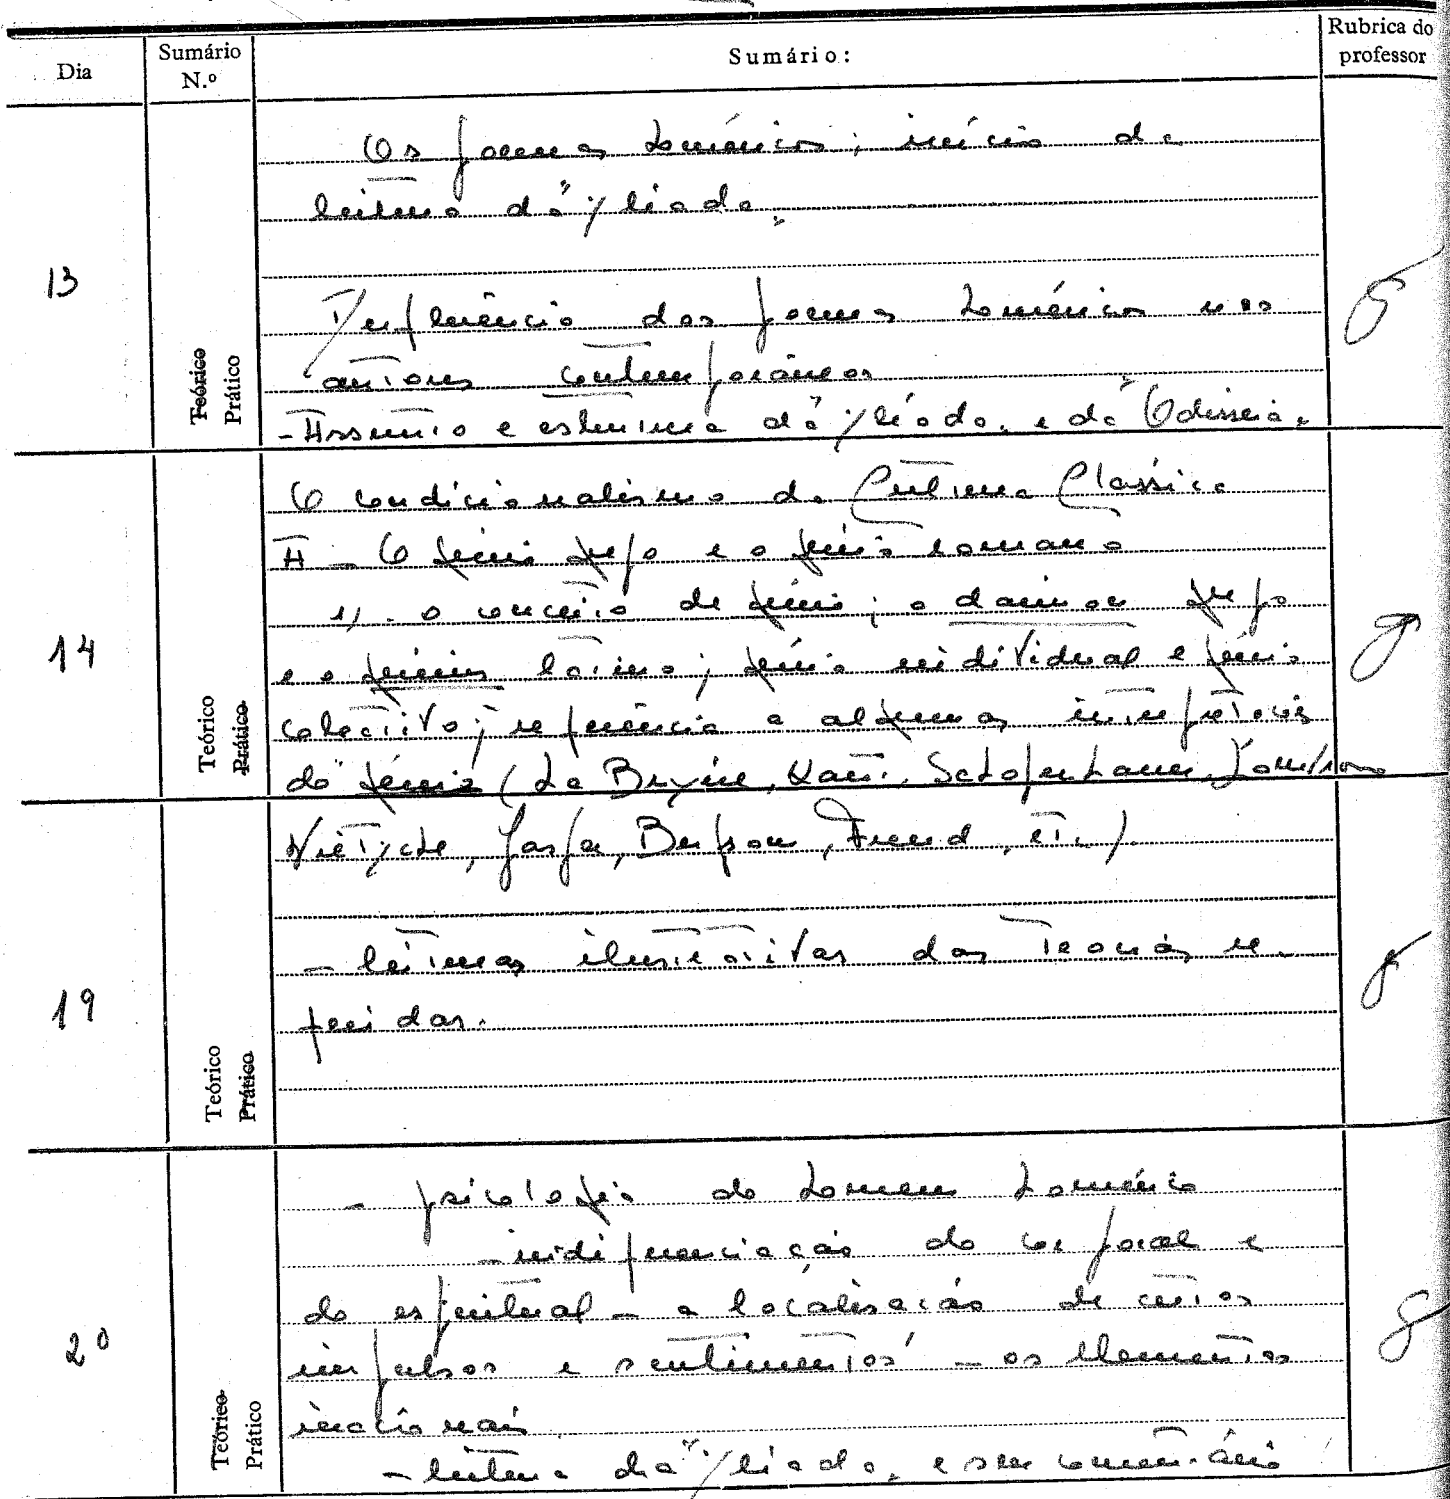 Dia
Sumário N.º
Sumário:
Rubrica do professor
13
Teórico
Prático
Os poemas homéricos; início da
leitura da "Ilíada".
Influência dos poemas homéricos nos
autores contemporâneos
- Assunto e estrutura da "Ilíada" e da "Odisseia".
14
Teórico
Prático
O condicionalismo da Cultura Clássica
A - O génio grego e o génio romano
1). o conceito de génio; o daimon grego
e o genius latino; génio individual e génio
colectivo; referência a algumas interpretações
do génio (La Bruyère, Kant, Schopenhauer,
19
Teórico
Prático
Nietzsche, Bergson, Freud, etc.).
- leituras ilustrativas das teorias re-
feridas.
20
Teórico
Prático
- psicologia do homem homérico
- indiferenciação do corporal e
do espiritual - a localização de certos
impulsos e sentimentos - os elementos
irracionais
- leitura da "Ilíada" e seu comentário